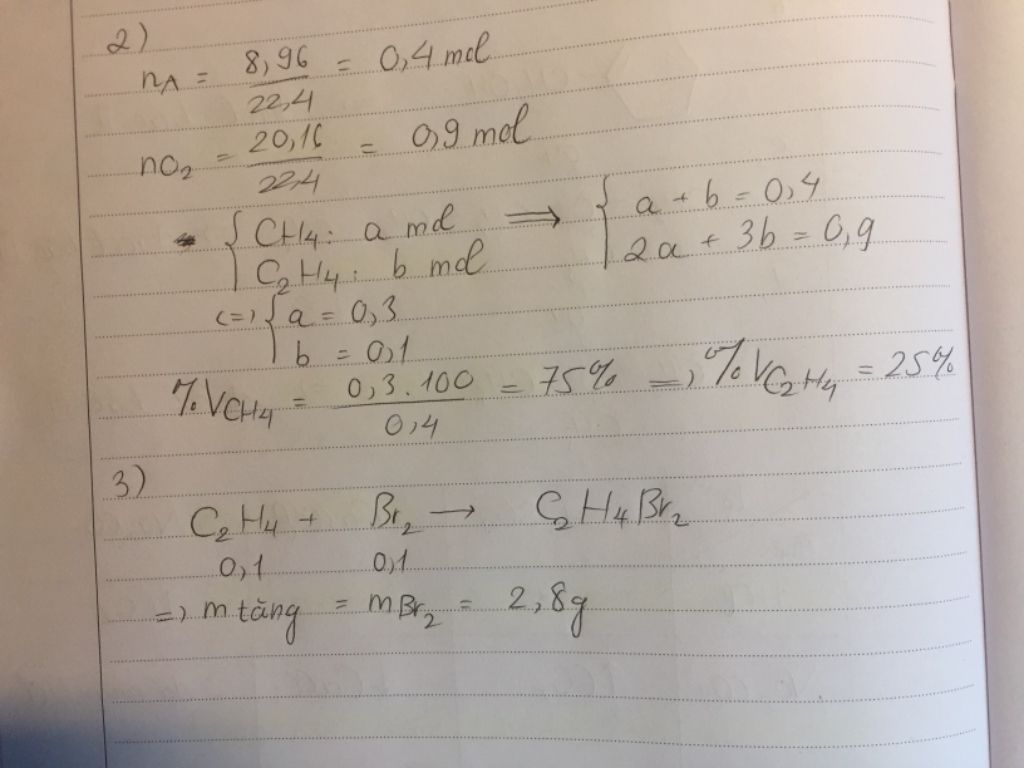 2)
nA = 8,96 / 22,4 = 0,4 mol
nO₂ = 20,16 / 22,4 = 0,9 mol
{ CH4: a mol ⟹ { a + b = 0,4
C₂H₄: b mol 2a + 3b = 0,9
(=) { a = 0,3
b = 0,1
%VCH4 = 0,3.100 / 0,4 = 75% =) %VC₂H₄ = 25%
3)
C₂H₄ + Br₂ → C₂H₄Br₂
0,1 0,1
=) m tăng = mBr₂ = 2,8g